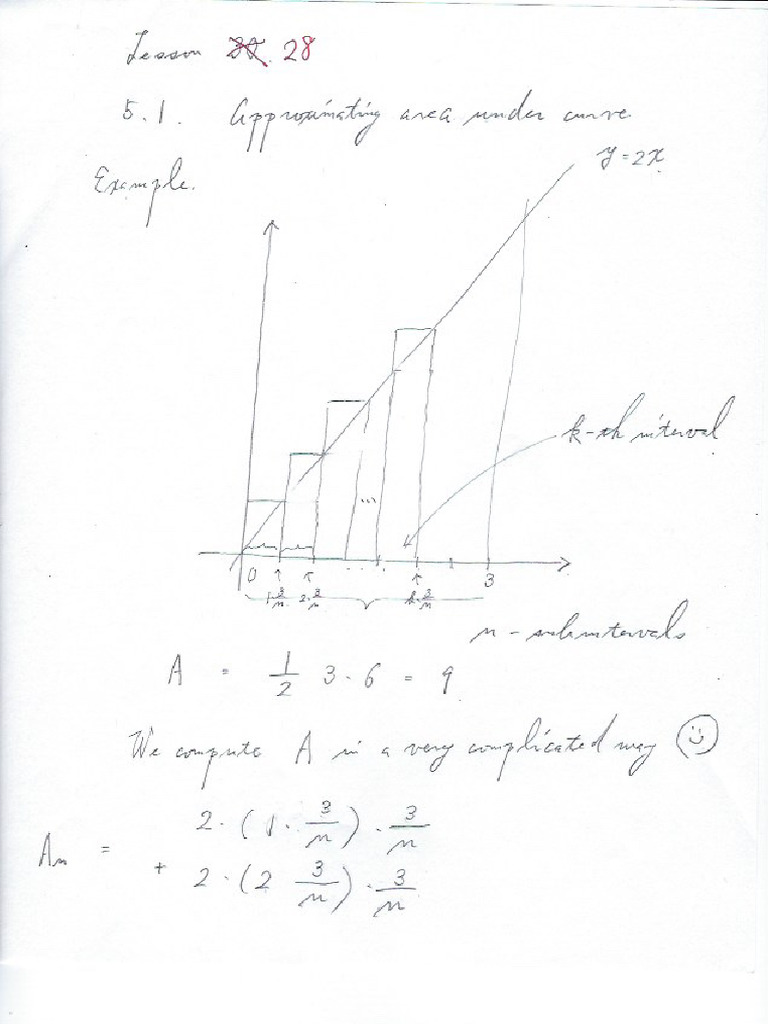 Lesson 32. 28
5.1. Approximating area under curve
Example.
y=2x
k-th interval
...
0 3
1·3/n 2·3/n k·3/n
n-subintervals
A = 1/2 3·6 = 9
We compute A in a very complicated way
An = 2·(1·3/n)·3/n
+ 2·(2 3/n)·3/n